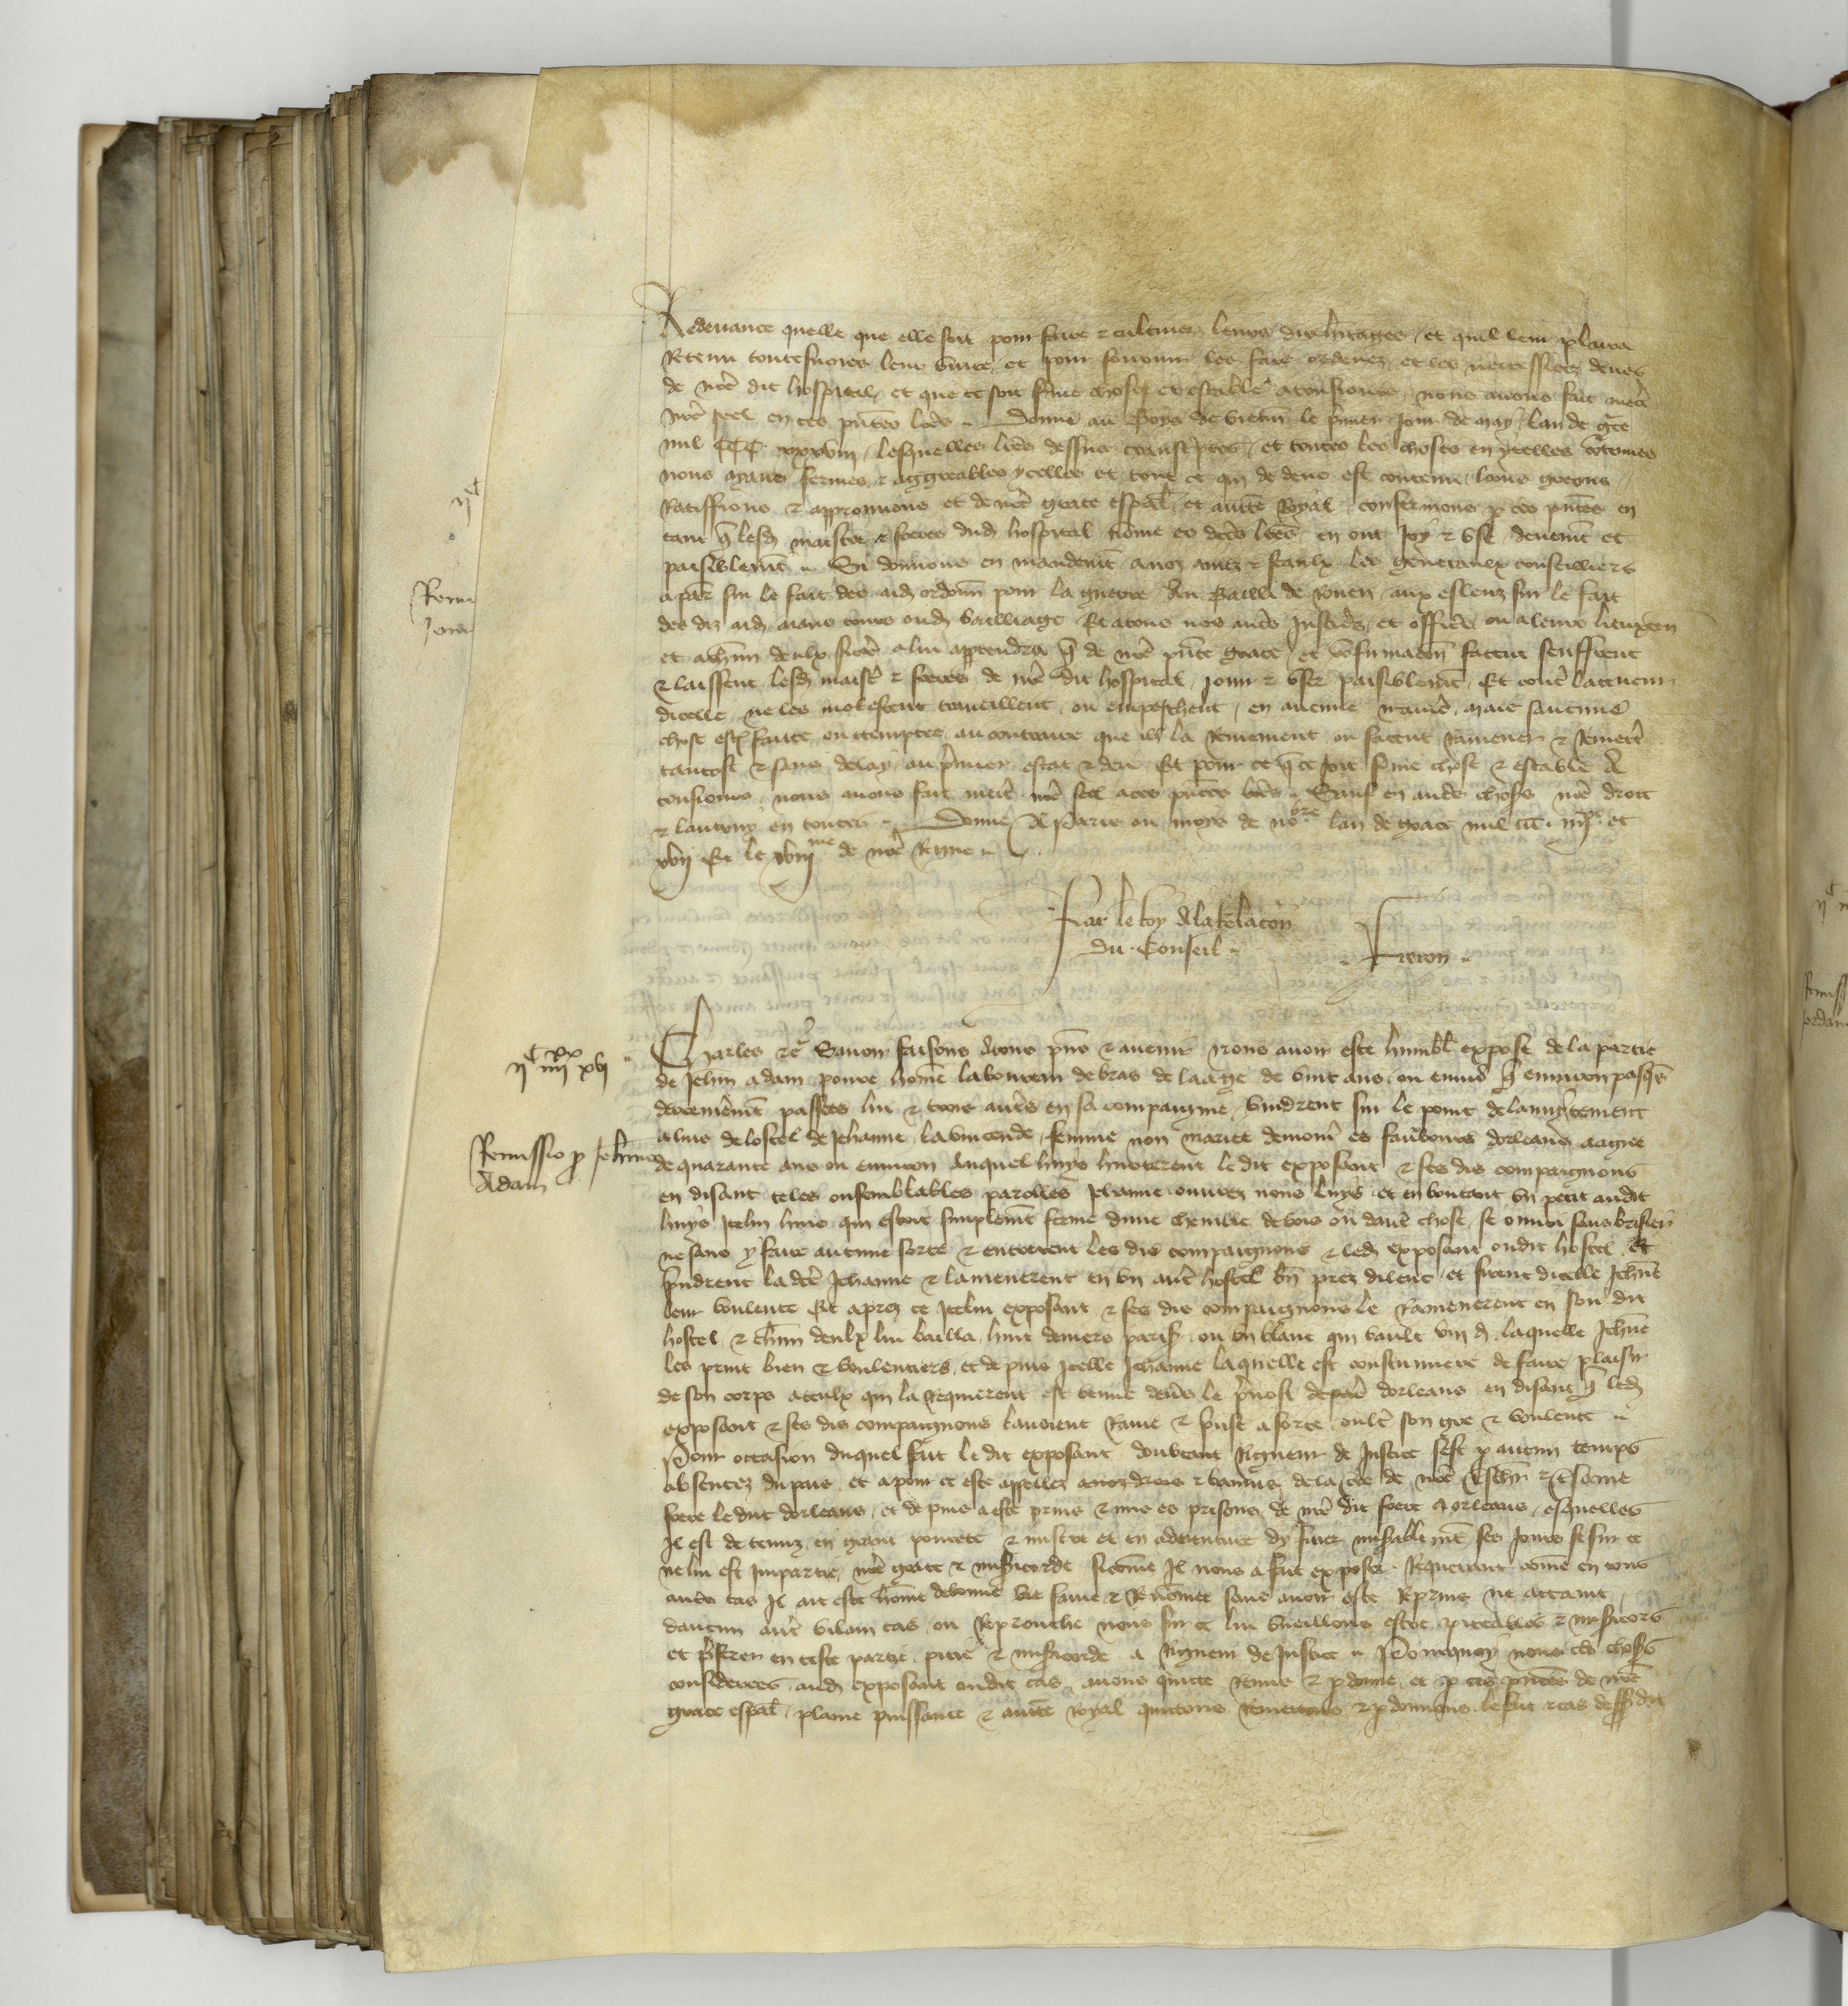 Redevance quelle que elle soit pour faire & cultiver leurs diz hitages et quil leur plaira
Retenu toutesvoies leur vivre et pour souvenir les fais ordenez et les necessitez deues
de nre dit hospital et que ce soit ferme chose et estable a tousjours nous avons fait mettre
nre seel en ces pntes lres Donne au Boys de Vicenn le pmier jour de may lan de gce
mil CCC xxxviii lesquelles lres dessus transcriptes et toutes les choses en ycelles contenues
nous ayans fermes & aggreables ycelles et tout ce qui dedens est contenu loons greons
Ratiffions & approuvons et de nre grace espal et auttē Royal confermons p ces pntes en
tant q lesd maistre & freres dud hospital nome es dces lres en ont joy & use deuemt et
paisiblemt Si donnons en mandemt a noz amez & feaulx les generaulx conseilliers
a par sur le fait des aid ordonn pour la guerre Au Bailli de Rouen aux esleuz sur le fait
des diz aid aians cours oud bailliage Et a tous nos autres justiciers et officiers ou a leurs lieuxten
et a chun deulx sicōe a lui apptendra q de nre pnte grace et confirmacon facent seuffrent
& laissent lesd maistre & freres de nre dit hospital joir & user paisiblemt Et contre la teneur
dicelle ne les molestent travaillent ou empeschent en aucune maniere mais saucune
chose est faicte ou attemptee au contraire que ilz la Ramenent ou facent ramener & remettre
tantost & sans delay au pmier estat & deu Et pour ce q ce soit ferme chose & estable A
tousjours nous avons fait mettre nre seel a ces pntes lres Sauf en autres choses nre droit
& lautruy en toutes Donne A Paris ou moys de novbre lan de grace mil ccc iiiixx et
xvii Et le xviiime de nre Regne
Par le Roy A la Relacon
du Conseil
Freron
iic iiiixx xvi
Charles &c Savoir faisons A tous pns & avenir Nous avoir este humblt expose de la partie
de Jehan Adam povre home laboureur de bras de laage de vint ans ou environ q environ pasqs
derrenieremt passees lui & trois autres en sa compaignie vindrent sur le point de lanuytement
Remissio p Jehanne
Adam
a luis de lostel de Jehanne la vincende femme non mariee demour es faubours dorleans aagee
de quarante ans ou environ Auquel huys hurterent le dit exposant & ses dis compaignons
en disant teles ou semblables parolles Jehanne ouvrez nous luys et en boutant un petit audit
huys icelui huis qui estoit simplemt ferme dune cheville de bois ou dautre chose se ouvri sans brisier
ne sans y faire aucune force & entrerent les dis compaignons & led exposant oudit hostel Et
pindrent la dce Jehanne & lamenerent en un autre hostel bn prez dilent et firent dicelle Jehne
leur voulente Et aprez ce icelui exposant & ses dis compaignons le Ramenerent en son dit
hostel & chun deulx lui bailla huit deniers paris ou un blanc qui vault viii d laquelle Jehne
les print bien & voulentiers et depuis icelle Jehanne laquelle est coustumiere de faire plaisir
de son corps a ceulx qui la requierent est venue devers le prevost de dorleans en disant q led
exposant & ses dis compaignons lavoient Ravie & prise a force oultre son gre & voulente
Pour occasion duquel fait le dit exposant doubtant Rigueur de Justice sest p aucun temps
absentez du pais et a pour ce este appellez a noz drois & bannis de la de nre treschier & tresame
frere le duc dorleans et depuis a este prins & mis es prisons de nre dit frere A Orleans esquelles
Il est detenuz en grant povrete & misere et en adventure dy finer miserablemt ses jours se sur ce
ne lui est impartie nre grace & misericorde sicome Il nous a fait exposer Requerant come en tous
autres cas Il ait este home de bonne vie fame & Renomee sans avoir este Reprins ne attaint
daucun autre vilain cas ou Reprouche nous sur ce lui vueillons estre piteables & misericors
et pferer en ceste partie pitie & misericorde a Rigueur de Justice Pourquoy nous ces choses
considerees aud exposant oudit cas avons quitte Remis & pdonne et p ces pntes de nre
grace espal plaine puissance & auttē Royal quittons Remettons & pdonnons le fait & cas dessusdit